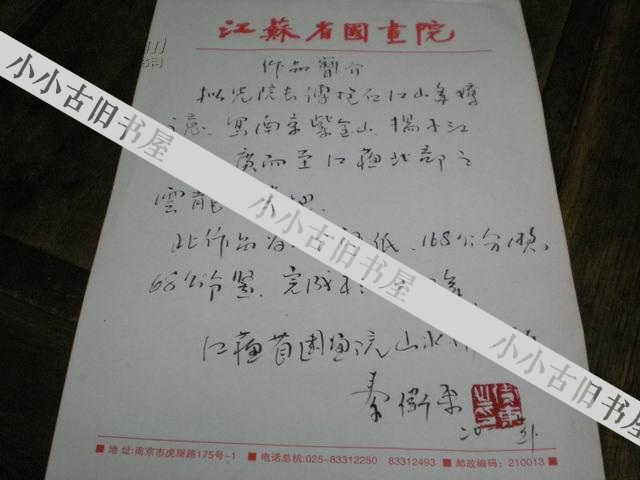 江蘇省國畫院
作品簡介
拟先院长傅抱石江山多嬌
之意.写南京紫金山.揚子江
廣而至江蘇北部之
雲龍
此作品为 纸.168公分横.
68公分竪.完成于
江蘇省國画院山水
秦衛平
■ 地 址:南京市虎踞路175号-1 ■ 电话总机:025-83312250 83312493 ■ 邮政编码: 210013 ■
小小古旧书屋
小小古旧书屋
小小古旧书屋